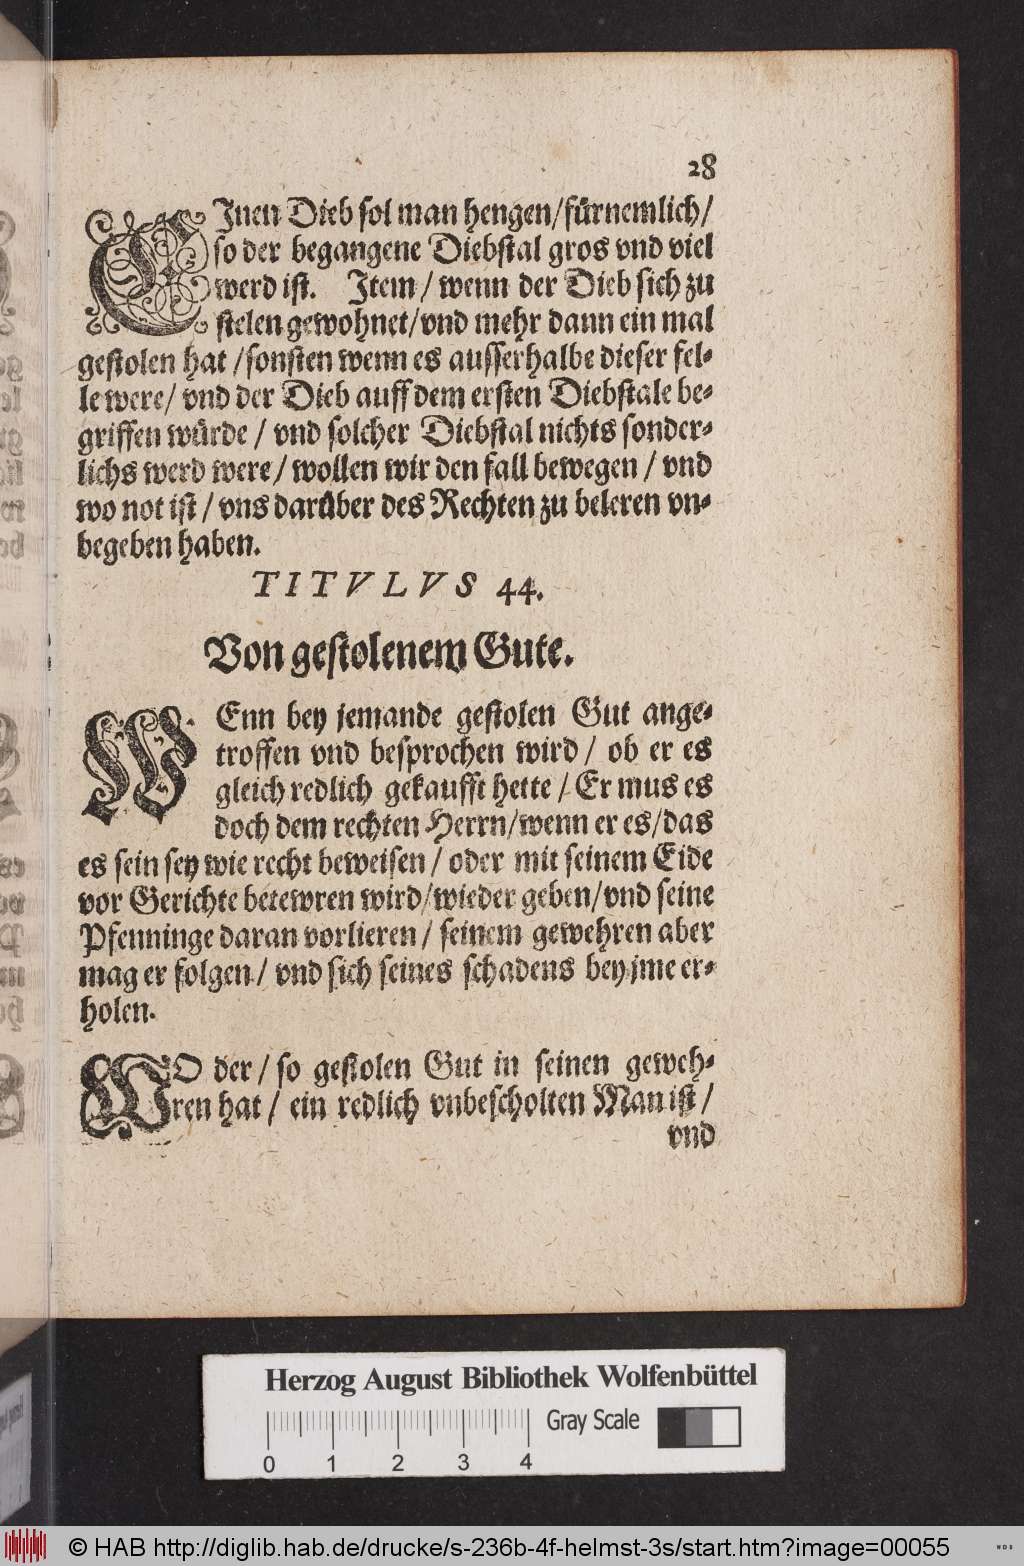 28
EInen Dieb sol man hengen/fürnemlich/
so der begangene Diebstal gros vnd viel
werd ist. Item / wenn der Dieb sich zu
stelen gewohnet/vnd mehr dann ein mal
gestolen hat /sonsten wenn es ausserhalbe dieser fel-
le were/ vnd der Dieb auff dem ersten Diebstale be-
griffen würde / vnd solcher Diebstal nichts sonder-
lichs werd were / wollen wir den fall bewegen / vnd
wo not ist / vns darüber des Rechten zu beleren vn-
begeben haben.
TITVLVS 44.
Von gestolenem Gute.
WEnn bey jemande gestolen Gut ange-
troffen vnd besprochen wird / ob er es
gleich redlich gekaufft hette / Er mus es
doch dem rechten Herrn/wenn er es/das
es sein sey wie recht beweisen / oder mit seinem Eide
vor Gerichte betewren wird/wieder geben/vnd seine
Pfenninge daran vorlieren / seinem gewehren aber
mag er folgen / vnd sich seines schadens bey jme er-
holen.
WO der / so gestolen Gut in seinen geweh-
ren hat / ein redlich vnbescholten Man ist /
vnd
Herzog August Bibliothek Wolfenbüttel
Gray Scale
0 1 2 3 4
© HAB http://diglib.hab.de/drucke/s-236b-4f-helmst-3s/start.htm?image=00055